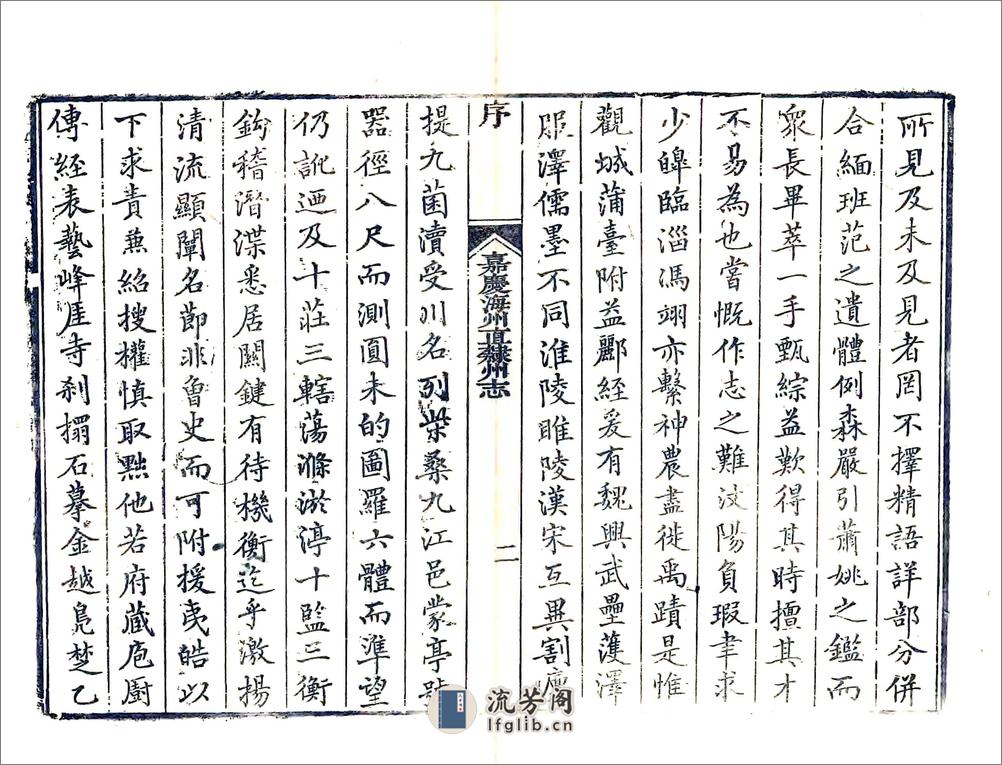 所見及未及見者罔不擇精語詳部分併
合緬班范之遺體例森嚴引蕭姚之鑑而
眾長畢萃一手甄綜益歎得其時擅其才
不易為也嘗慨作志之難汶陽負瑕聿求
少皥臨淄馮翊亦繫神農盡徙禹蹟是惟
觀城蒲臺附益酈經爰有魏興武壘蒦澤
服澤儒墨不同淮陵睢陵漢宋互異割
序
嘉慶海州直隸州志
二
提九菌瀆受川名列柴桑九江邑蒙亭
器徑八尺而測圓未的圖羅六體而準望
仍訛迺及十莊三轄蕩滌淤渟十監三衡
鉤稽潛渫悉居關鍵有待機衡迄乎激揚
清流顯闡名節非魯史而可附援夷皓以
下求責兼紹搜權慎取點他若府藏庖厨
傳經表藝峰厓寺刹搨石摹金越鳧楚乙
流芳阁
lfglib.cn